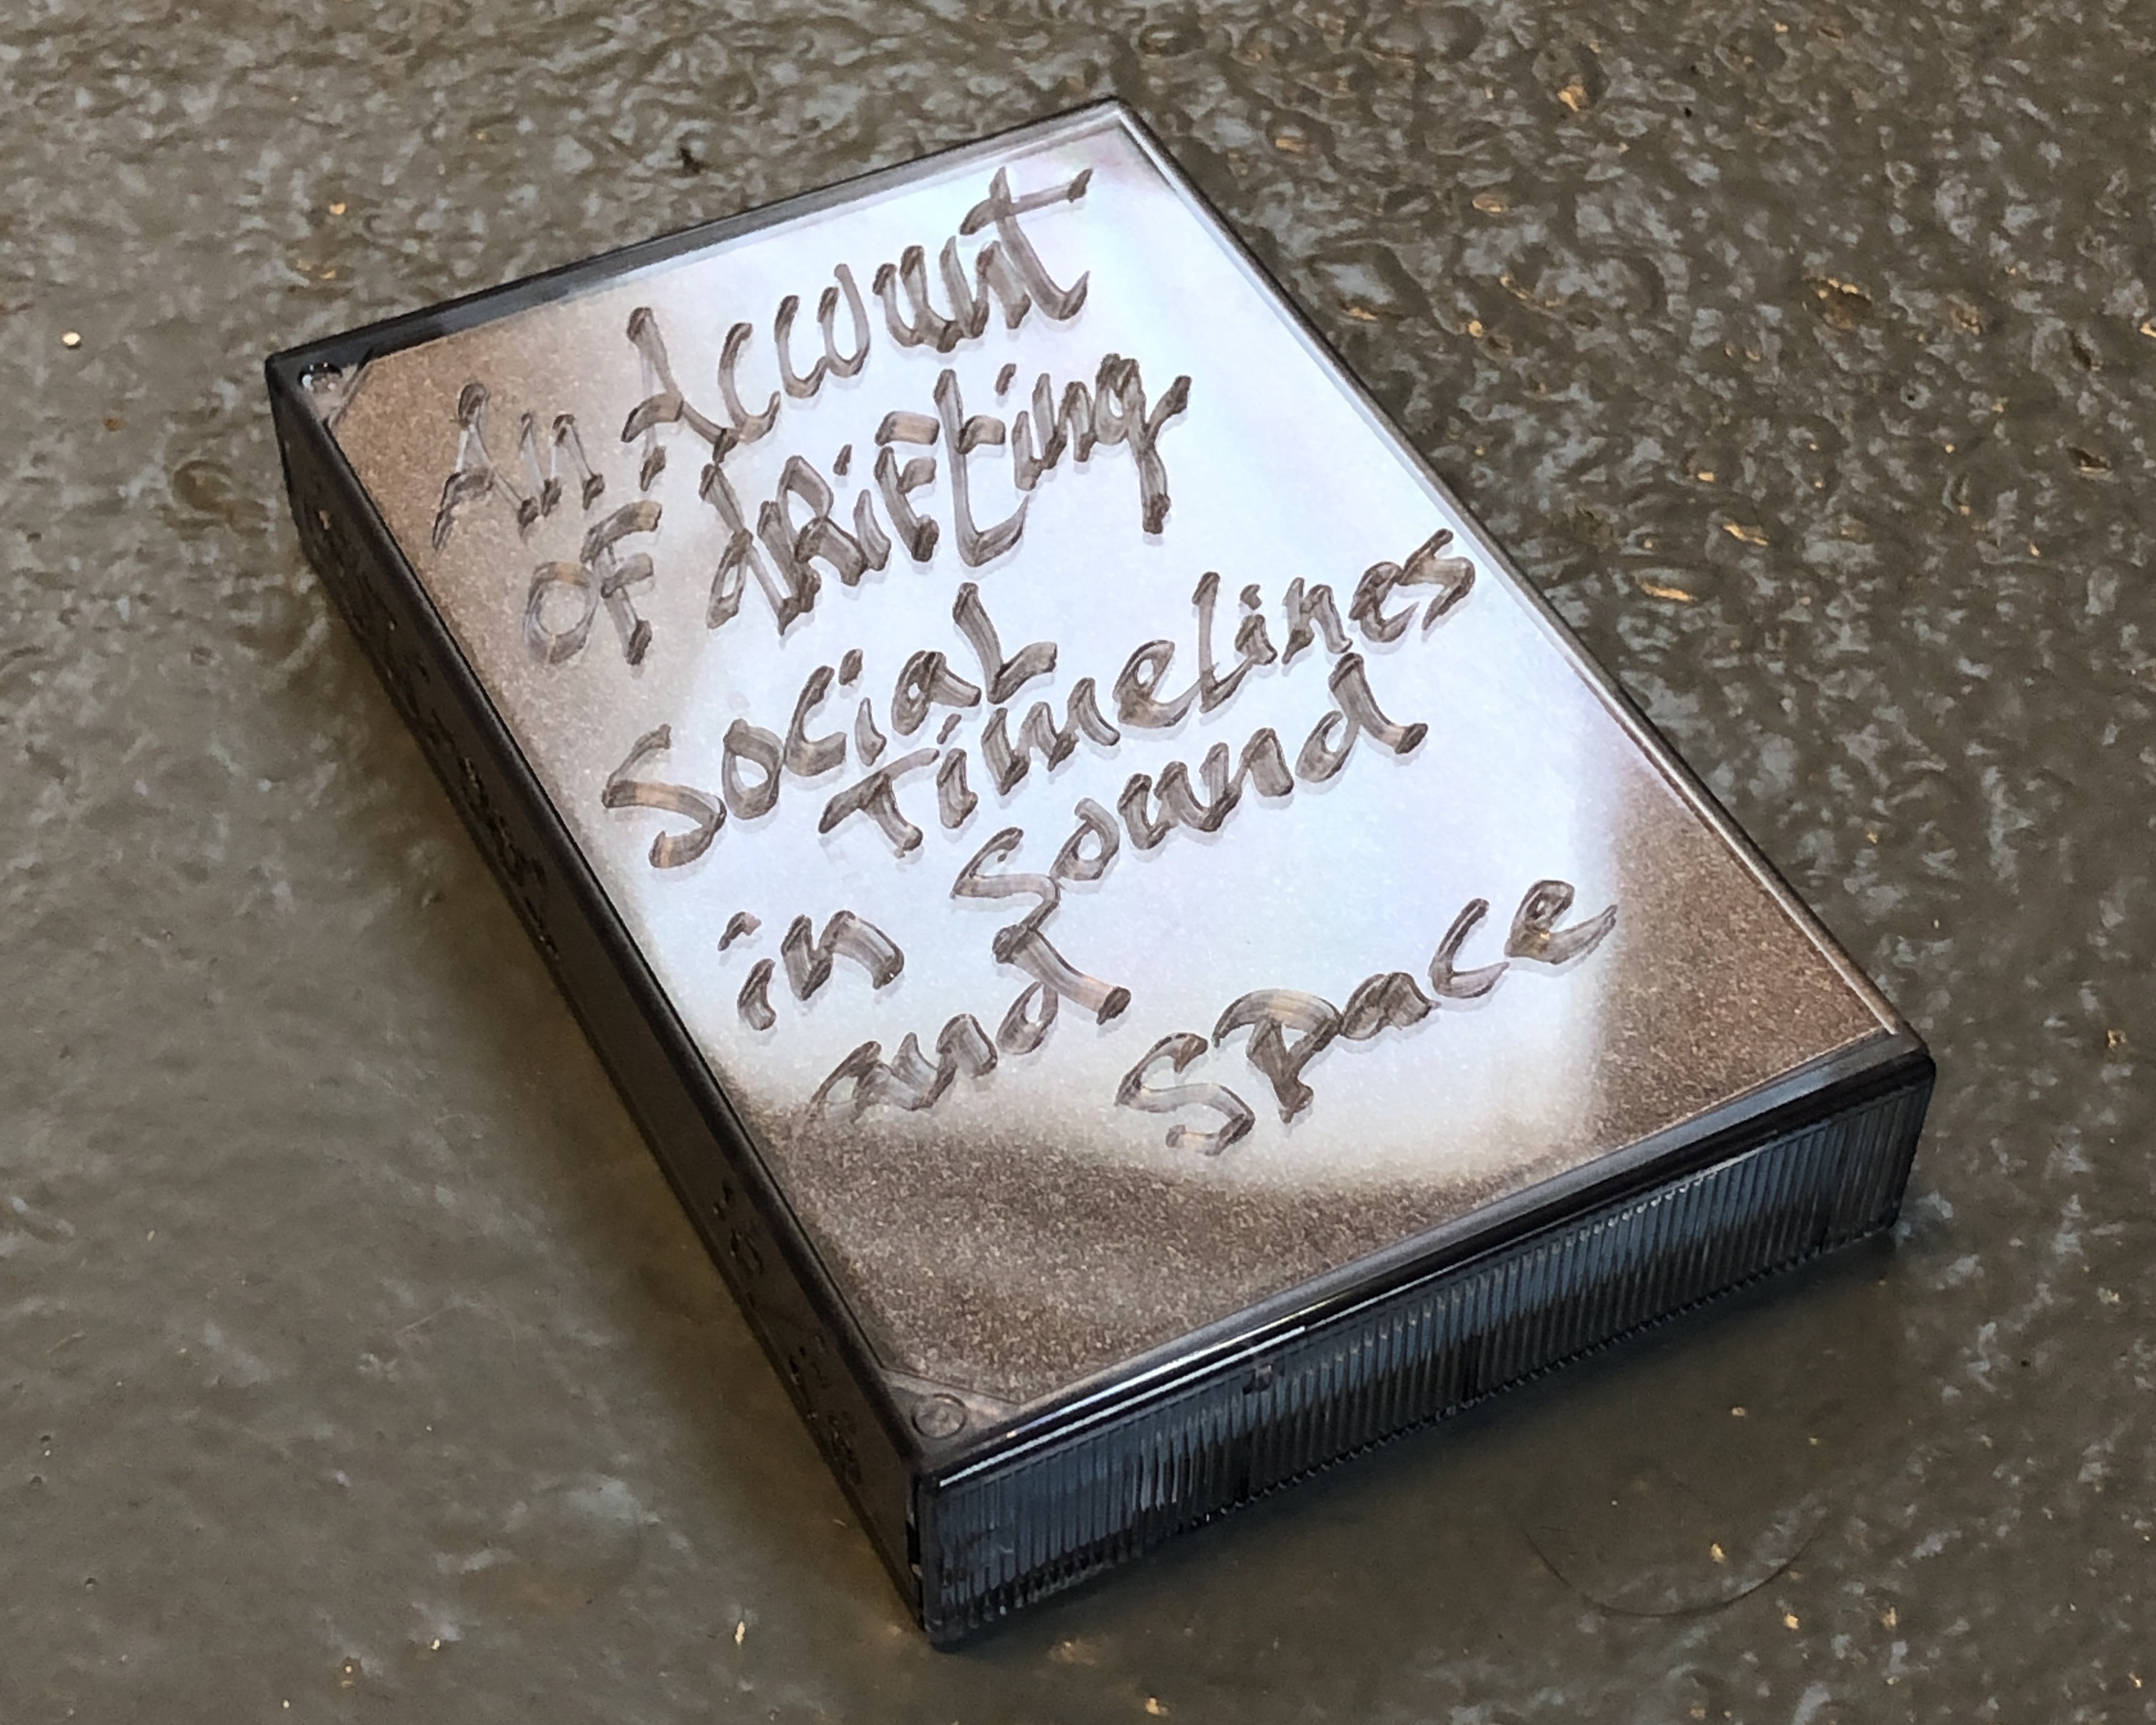 An Account
OF dRiFting
Social
Timelines
in Sound
and Space